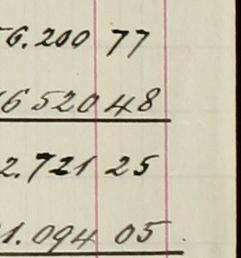 6.200 77
6 520 48
2.721 25
1.094 05